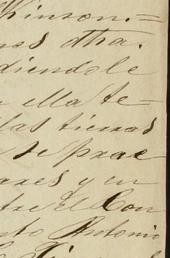 Kinson.=
dha.
diendole
ella te=
las tierras
se prac
ares y en
tre el Con
to Antonio